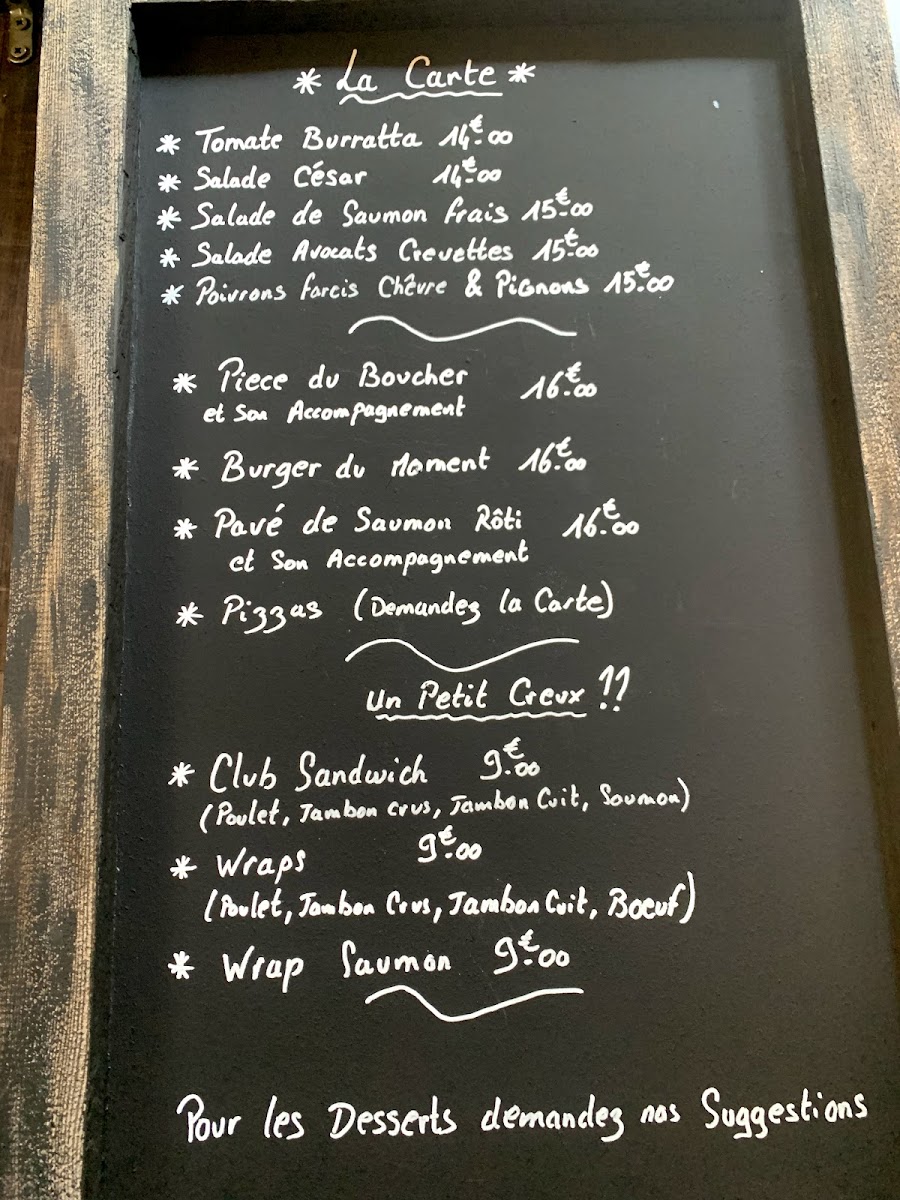 * La Carte *
* Tomate Burratta 14€.00
* Salade César 14€.00
* Salade de Saumon frais 15€.00
* Salade Avocats Crevettes 15€.00
* Poivrons farcis Chêvre & Pignons 15€.00
* Piece du Boucher 16€.00
et Son Accompagnement
* Burger du Moment 16€.00
* Pavé de Saumon Rôti 16€.00
et Son Accompagnement
* Pizzas (Demandez la Carte)
Un Petit Creux !!
* Club Sandwich 9€.00
(Poulet, Jambon crus, Jambon Cuit, Soumon)
* Wraps 9€.00
(Poulet, Jambon Crus, Jambon Cuit, Boeuf)
* Wrap Saumon 9€.00
Pour les Desserts demandez nos Suggestions